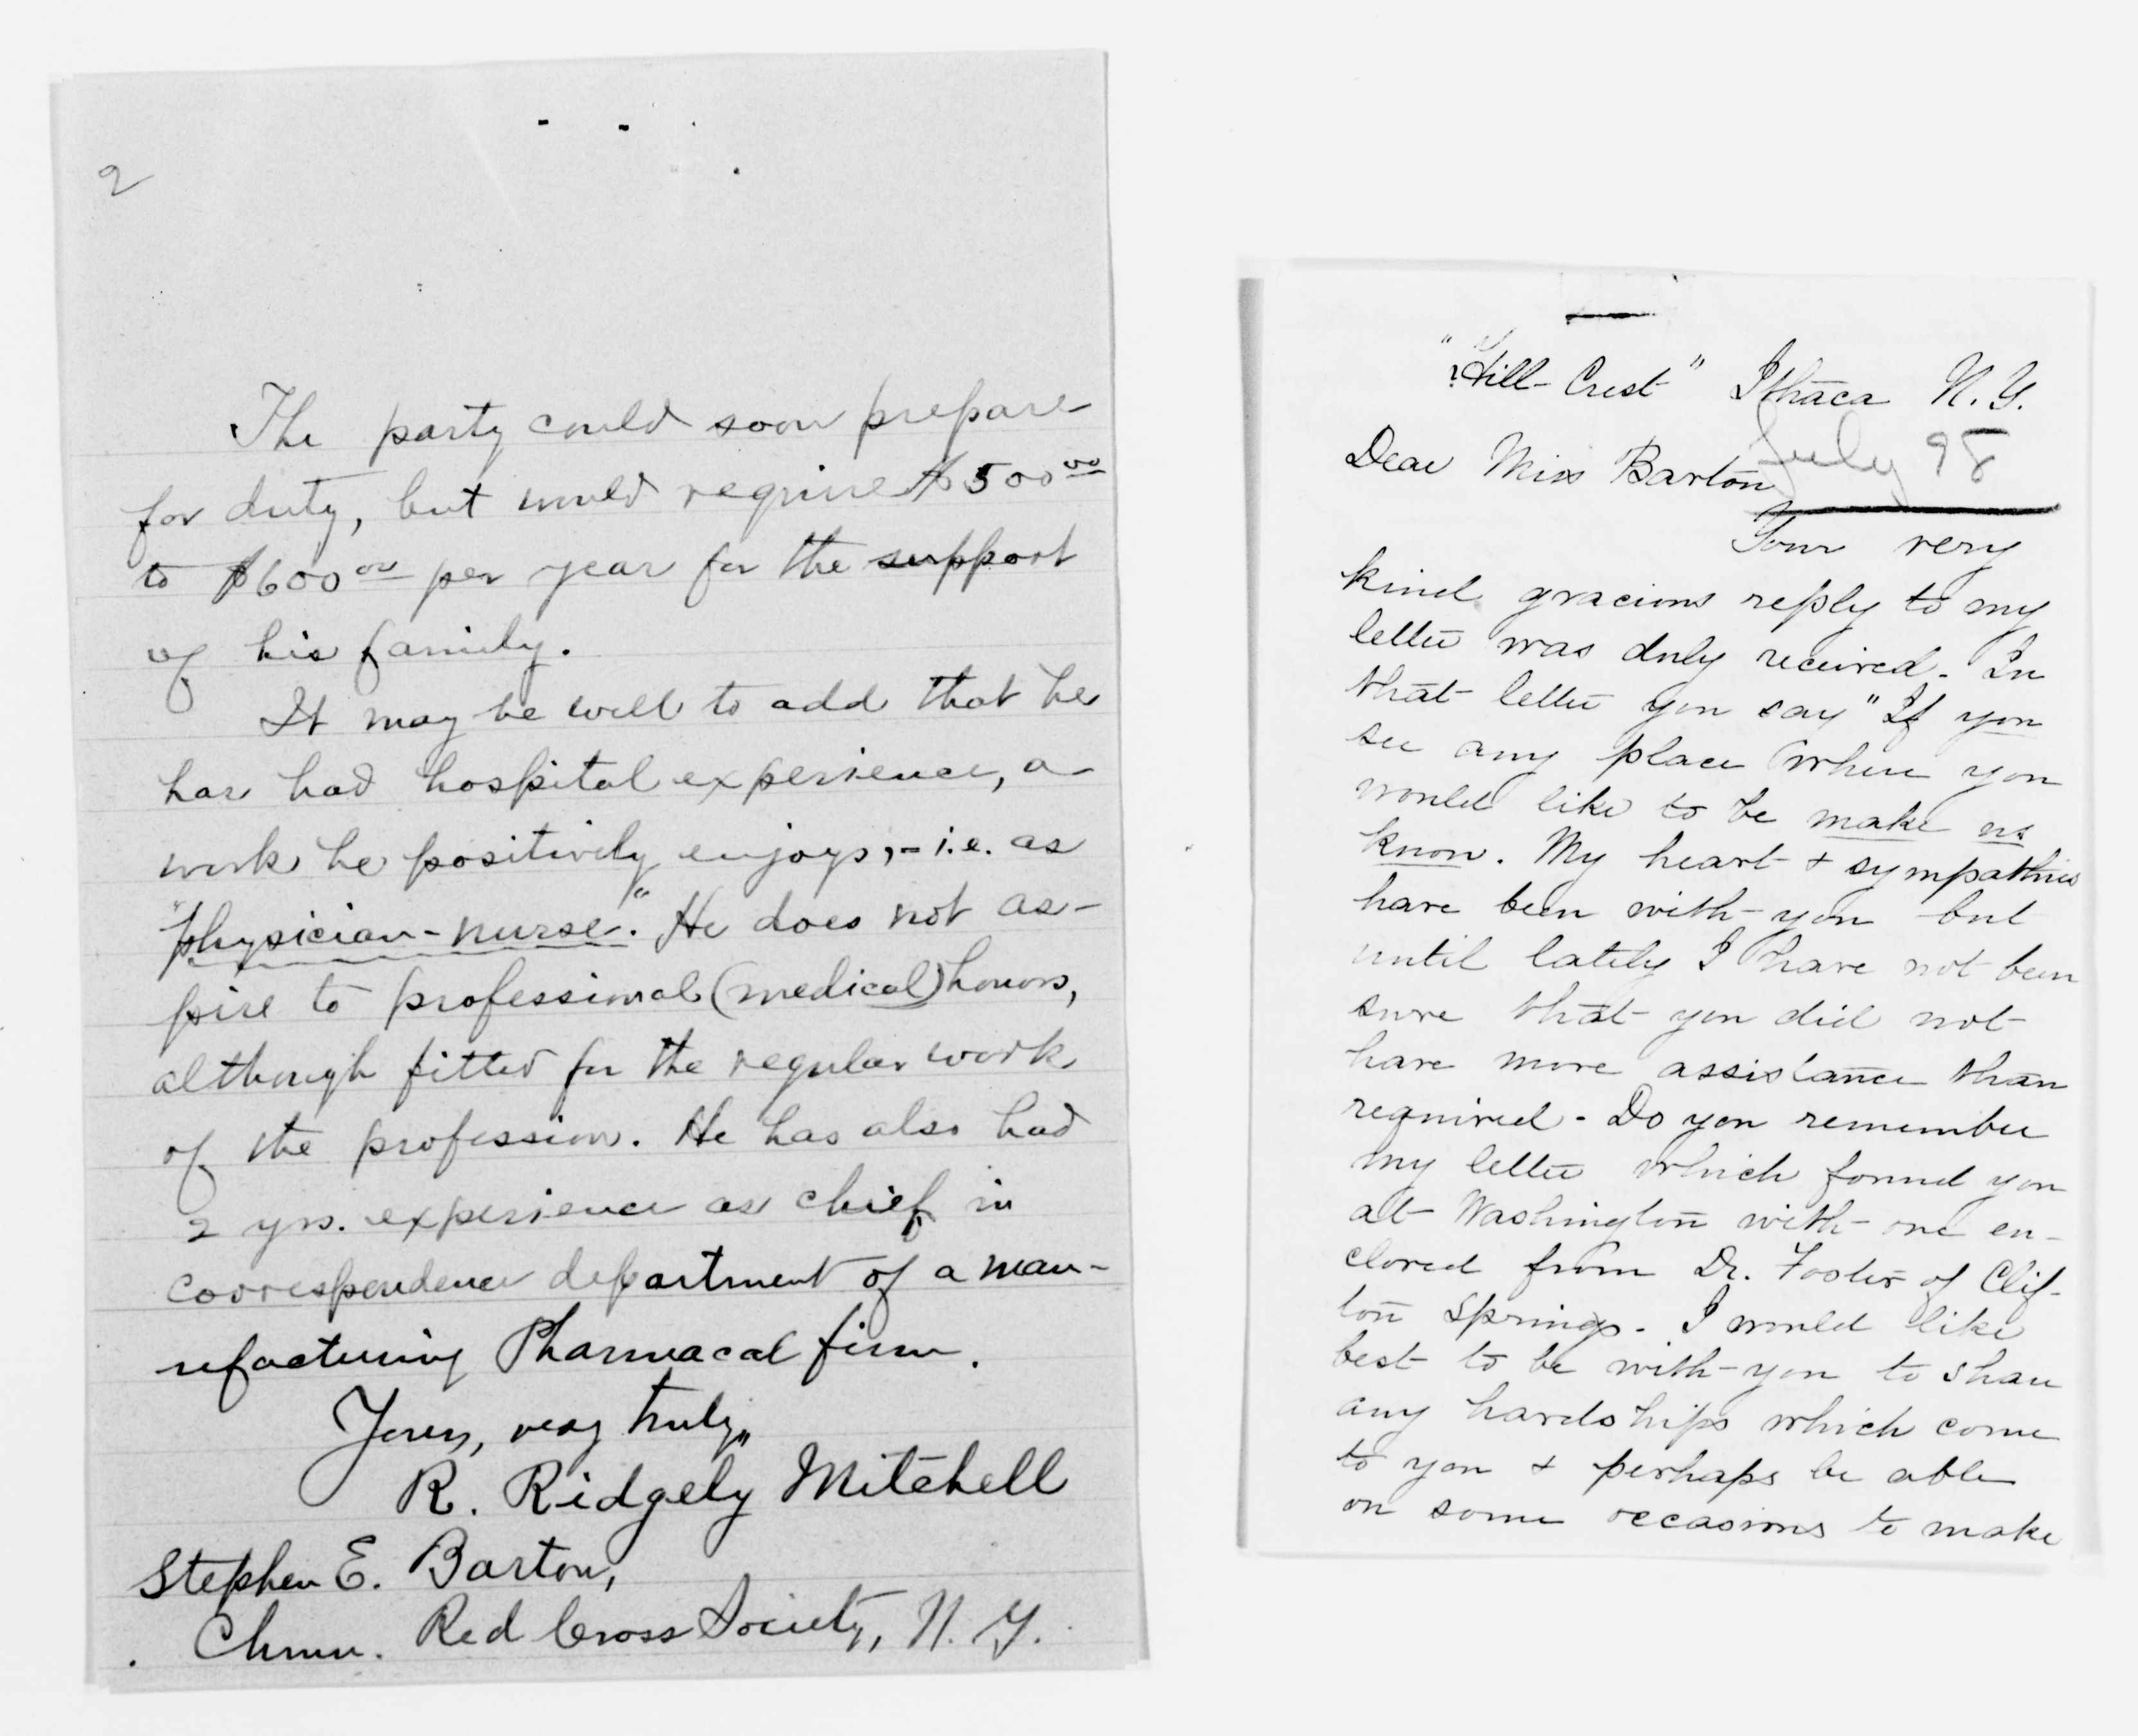 2
The party could soon prepare
for duty, but would require $500.00
to $600.00 per year for the support
of his family.
It may be well to add that he
has had hospital experience, a
work he positively enjoys, - i.e. as
"physician-nurse." He does not as-
pire to professional (medical) honors,
although fitted for the regular work
of the profession. He has also had
2 yrs. experience as chief in
correspondence department of a man-
ufacturing Pharmacal firm.
Yours, very truly,
R. Ridgely Mitchell
Stephen E. Barton,
Chmn. Red Cross Society, N. Y.
"Hill-Crest" Ithaca N. Y.
July 98
Dear Miss Barton
Your very
kind gracious reply to my
letter was duly received. In
that letter you say "If you
see any place where you
would like to be make us
know. My heart + sympathies
have been with you but
until lately I have not been
sure that you did not
have more assistance than
required. Do you remember
my letter which found you
at Washington with one en-
closed from Dr. Foster of Clif-
ton Springs. I would like
best to be with you to share
any hardships which come
to you + perhaps be able
on some occasions to make